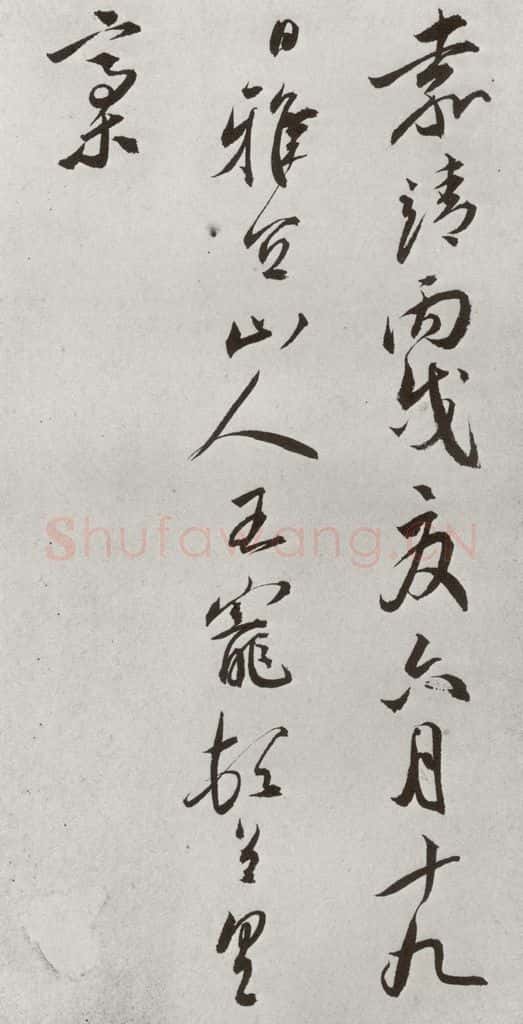 嘉靖丙戌夏六月十九
日雅宜山人王寵於白
稾
Shufawang.CN